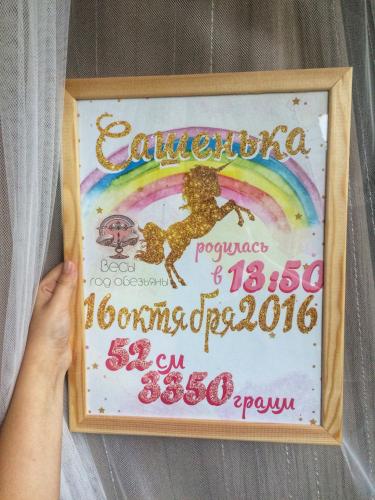 Сашенька
родилась
в 13:50
Весы
год обезьяны
16 октября 2016
52 см
3350 грамм